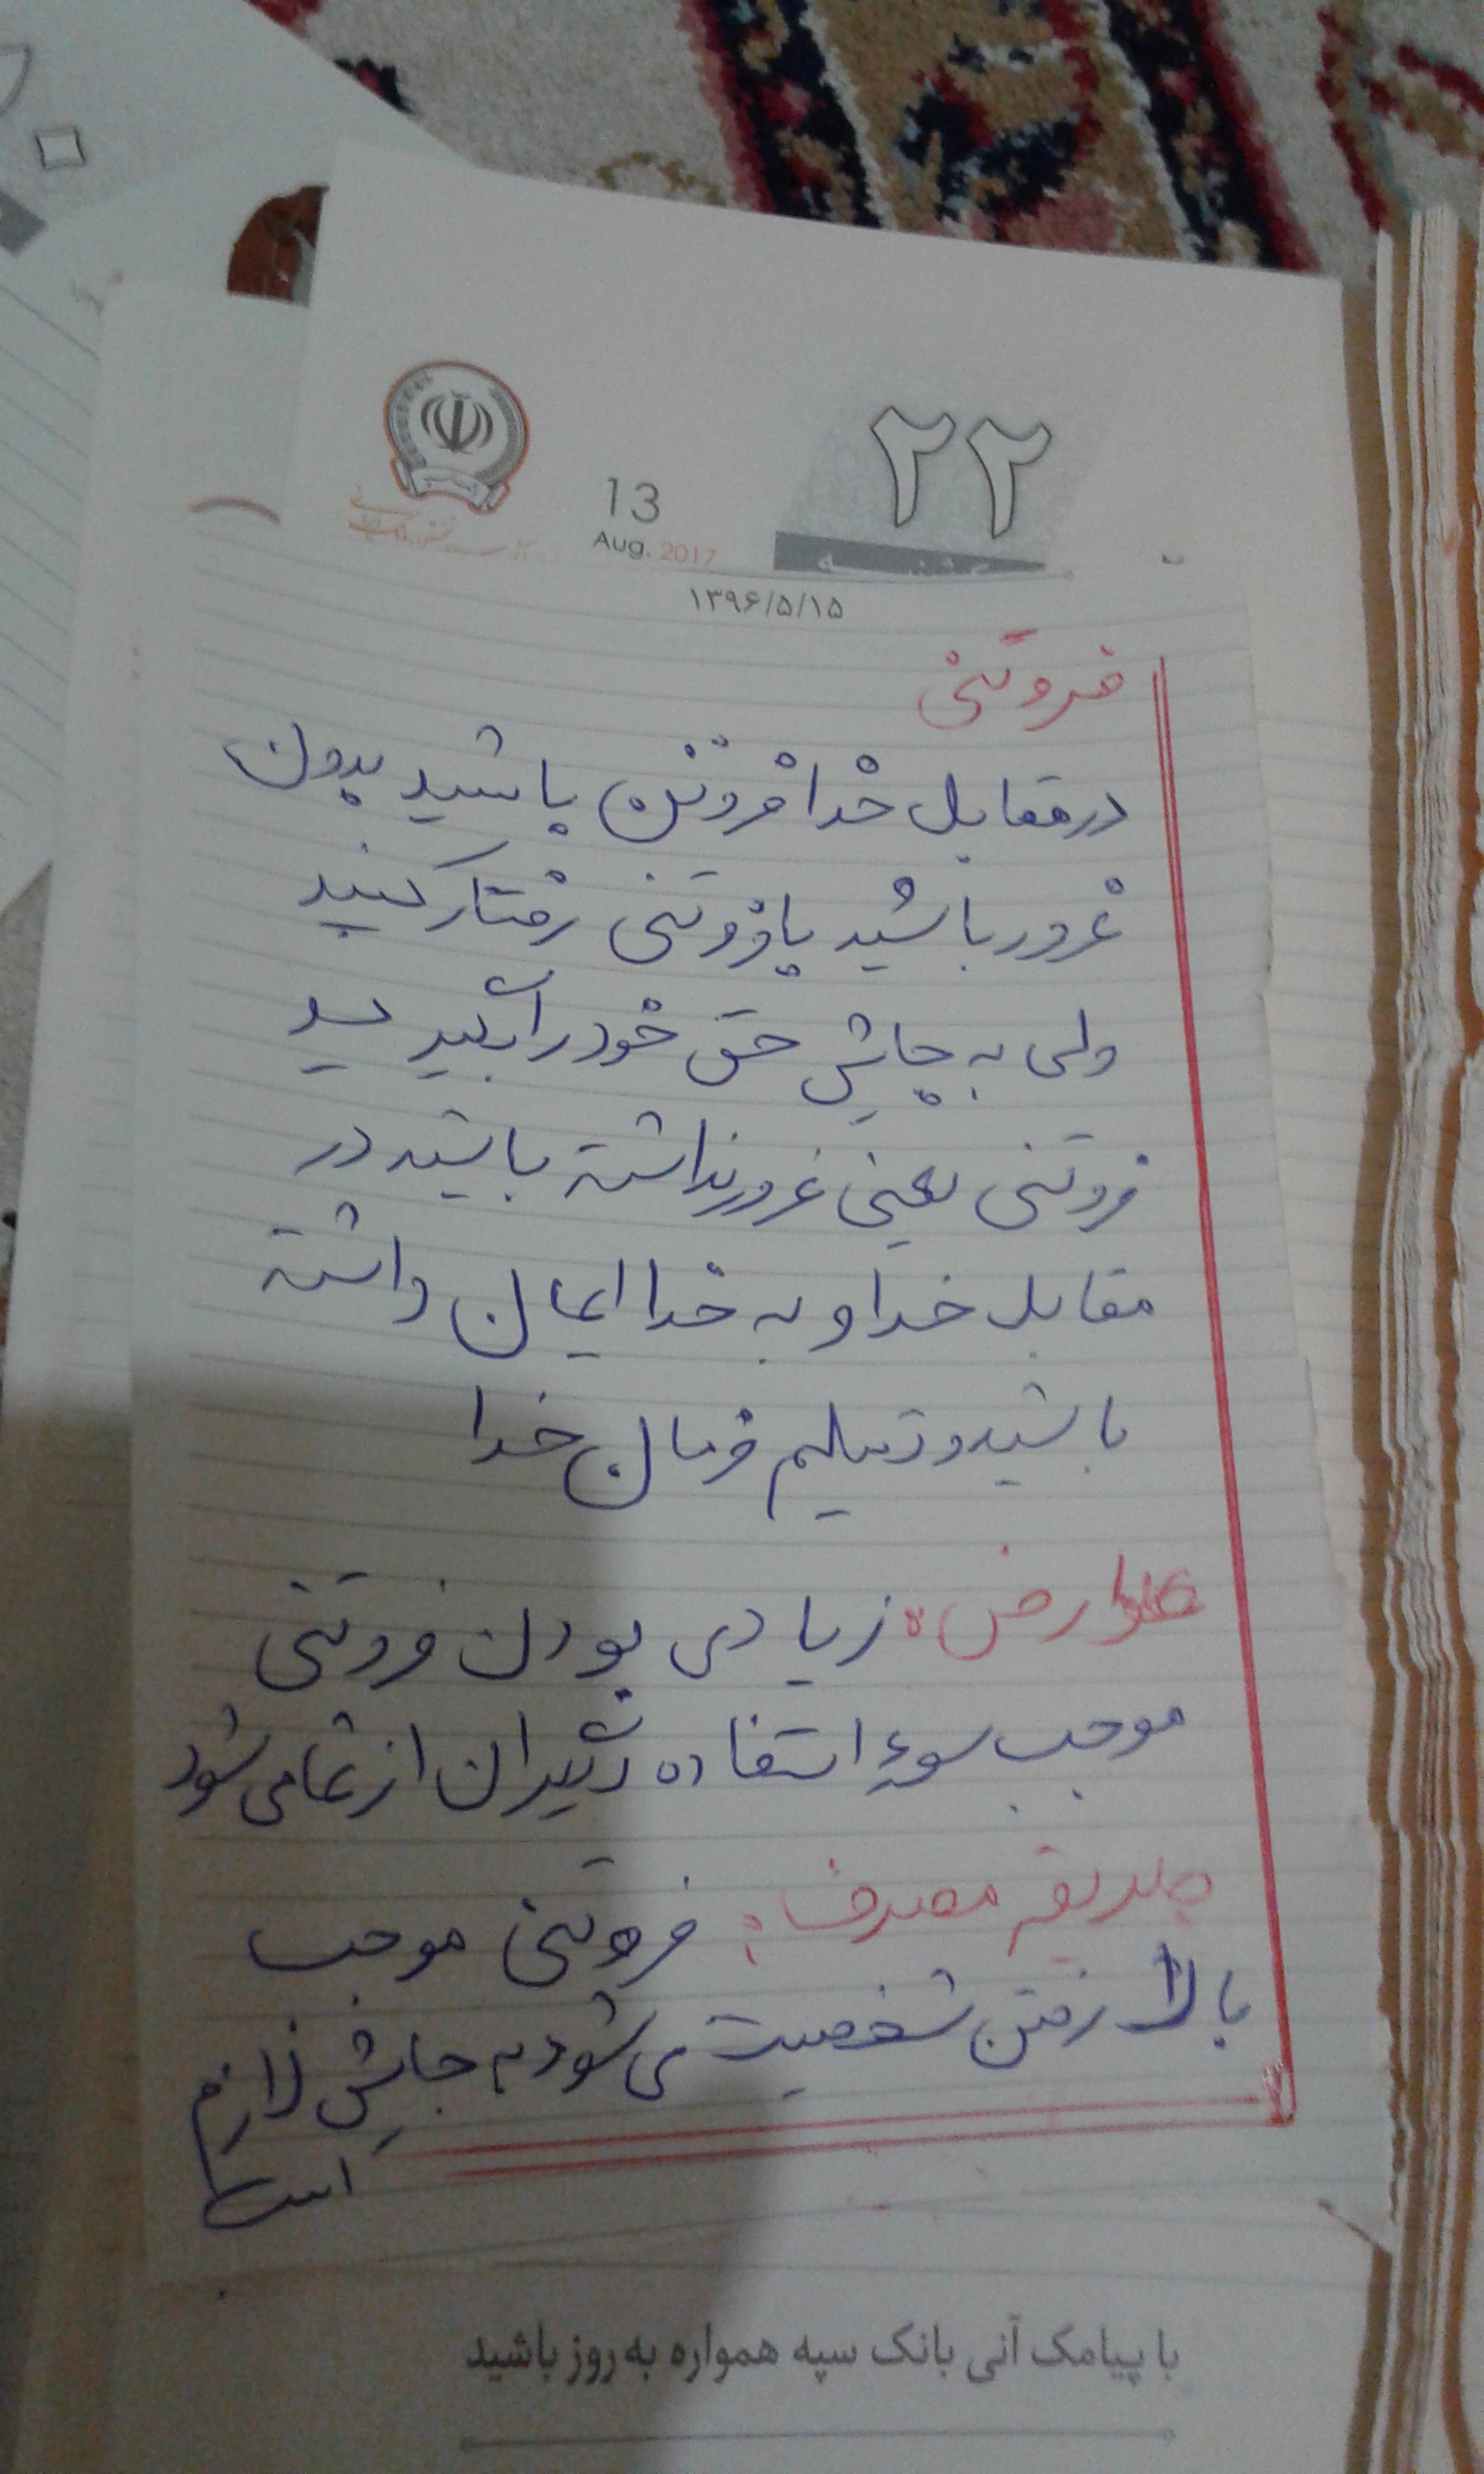 ۲۲
13
Aug. 2017
۱۳۹۶/۵/۱۵
فروتنی
در مقابل خدا فروتن باشید بدون
غرور باشید با فروتنی رفتار کنید
ولی به جایش حق خود را بگیرید
فروتنی یعنی غرور نداشته باشید در
مقابل خدا و به خدا ایمان داشته
باشید و تسلیم فرمان خدا
عوارض: زیادی بودن فروتنی
موجب سوءِ استفاده دیگران از شما می شود
طریقه مصرف: فروتنی موجب
بالا رفتن شخصیت می شود به جایش لازم
است
با پیامک آنی بانک سپه همواره به روز باشید